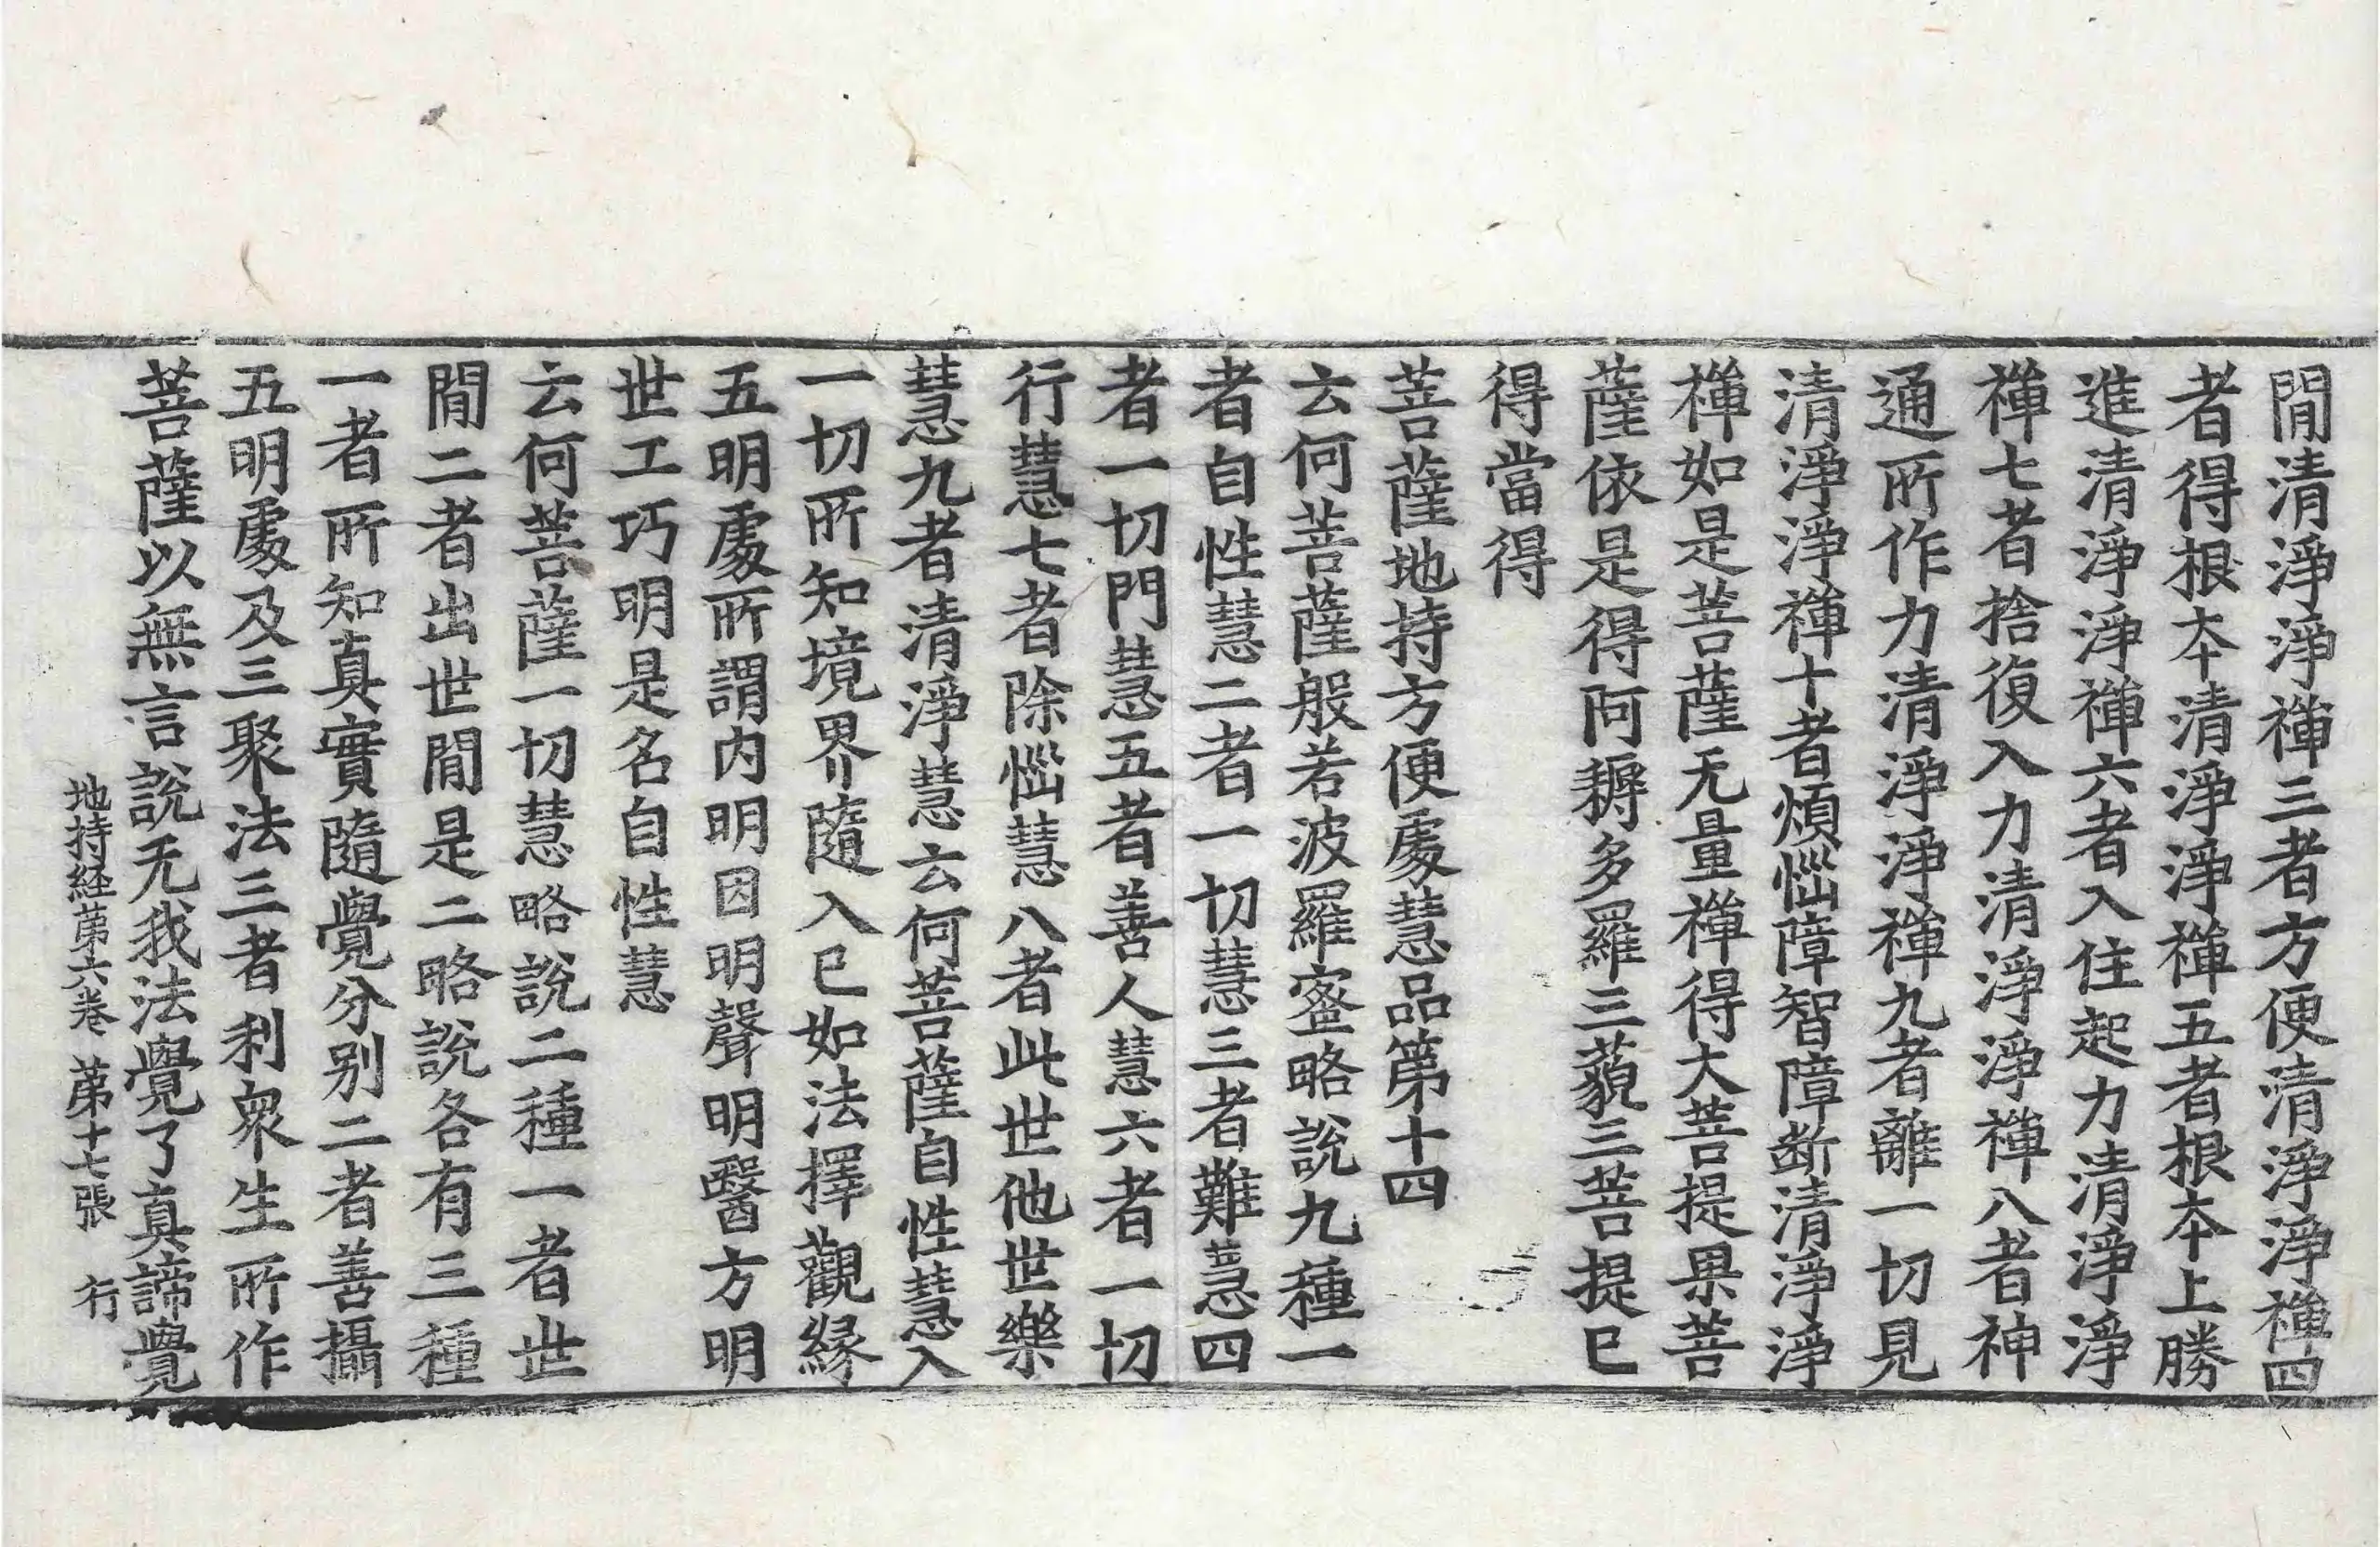 閒清淨淨禪三者方便清淨淨禪四
者得根本清淨淨禪五者根本上勝
進清淨淨禪六者入住起力清淨淨
禪七者捨復入力清淨淨禪八者神
通所作力清淨淨禪九者離一切見
清淨淨禪十者煩惱障智障断清淨淨
禪如是菩薩无量禪得大菩提果菩
薩依是得阿耨多羅三藐三菩提已
得當得
菩薩地持方便處慧品第十四
云何菩薩般若波羅蜜略說九種一
者自性慧二者一切慧三者難慧四
者一切門慧五者善人慧六者一切
行慧七者除惱慧八者此世他世樂
慧九者清淨慧云何菩薩自性慧入
一切所知境界隨入已如法擇觀緣
五明處所謂内明因明聲明醫方明
世工巧明是名自性慧
云何菩薩一切慧略說二種一者世
閒二者出世閒是二略說各有三種
一者所知真實隨覺分別二者善攝
五明處及三聚法三者利衆生所作
菩薩以無言說无我法覺了真諦覺
地持経苐六卷 苐十七張 行